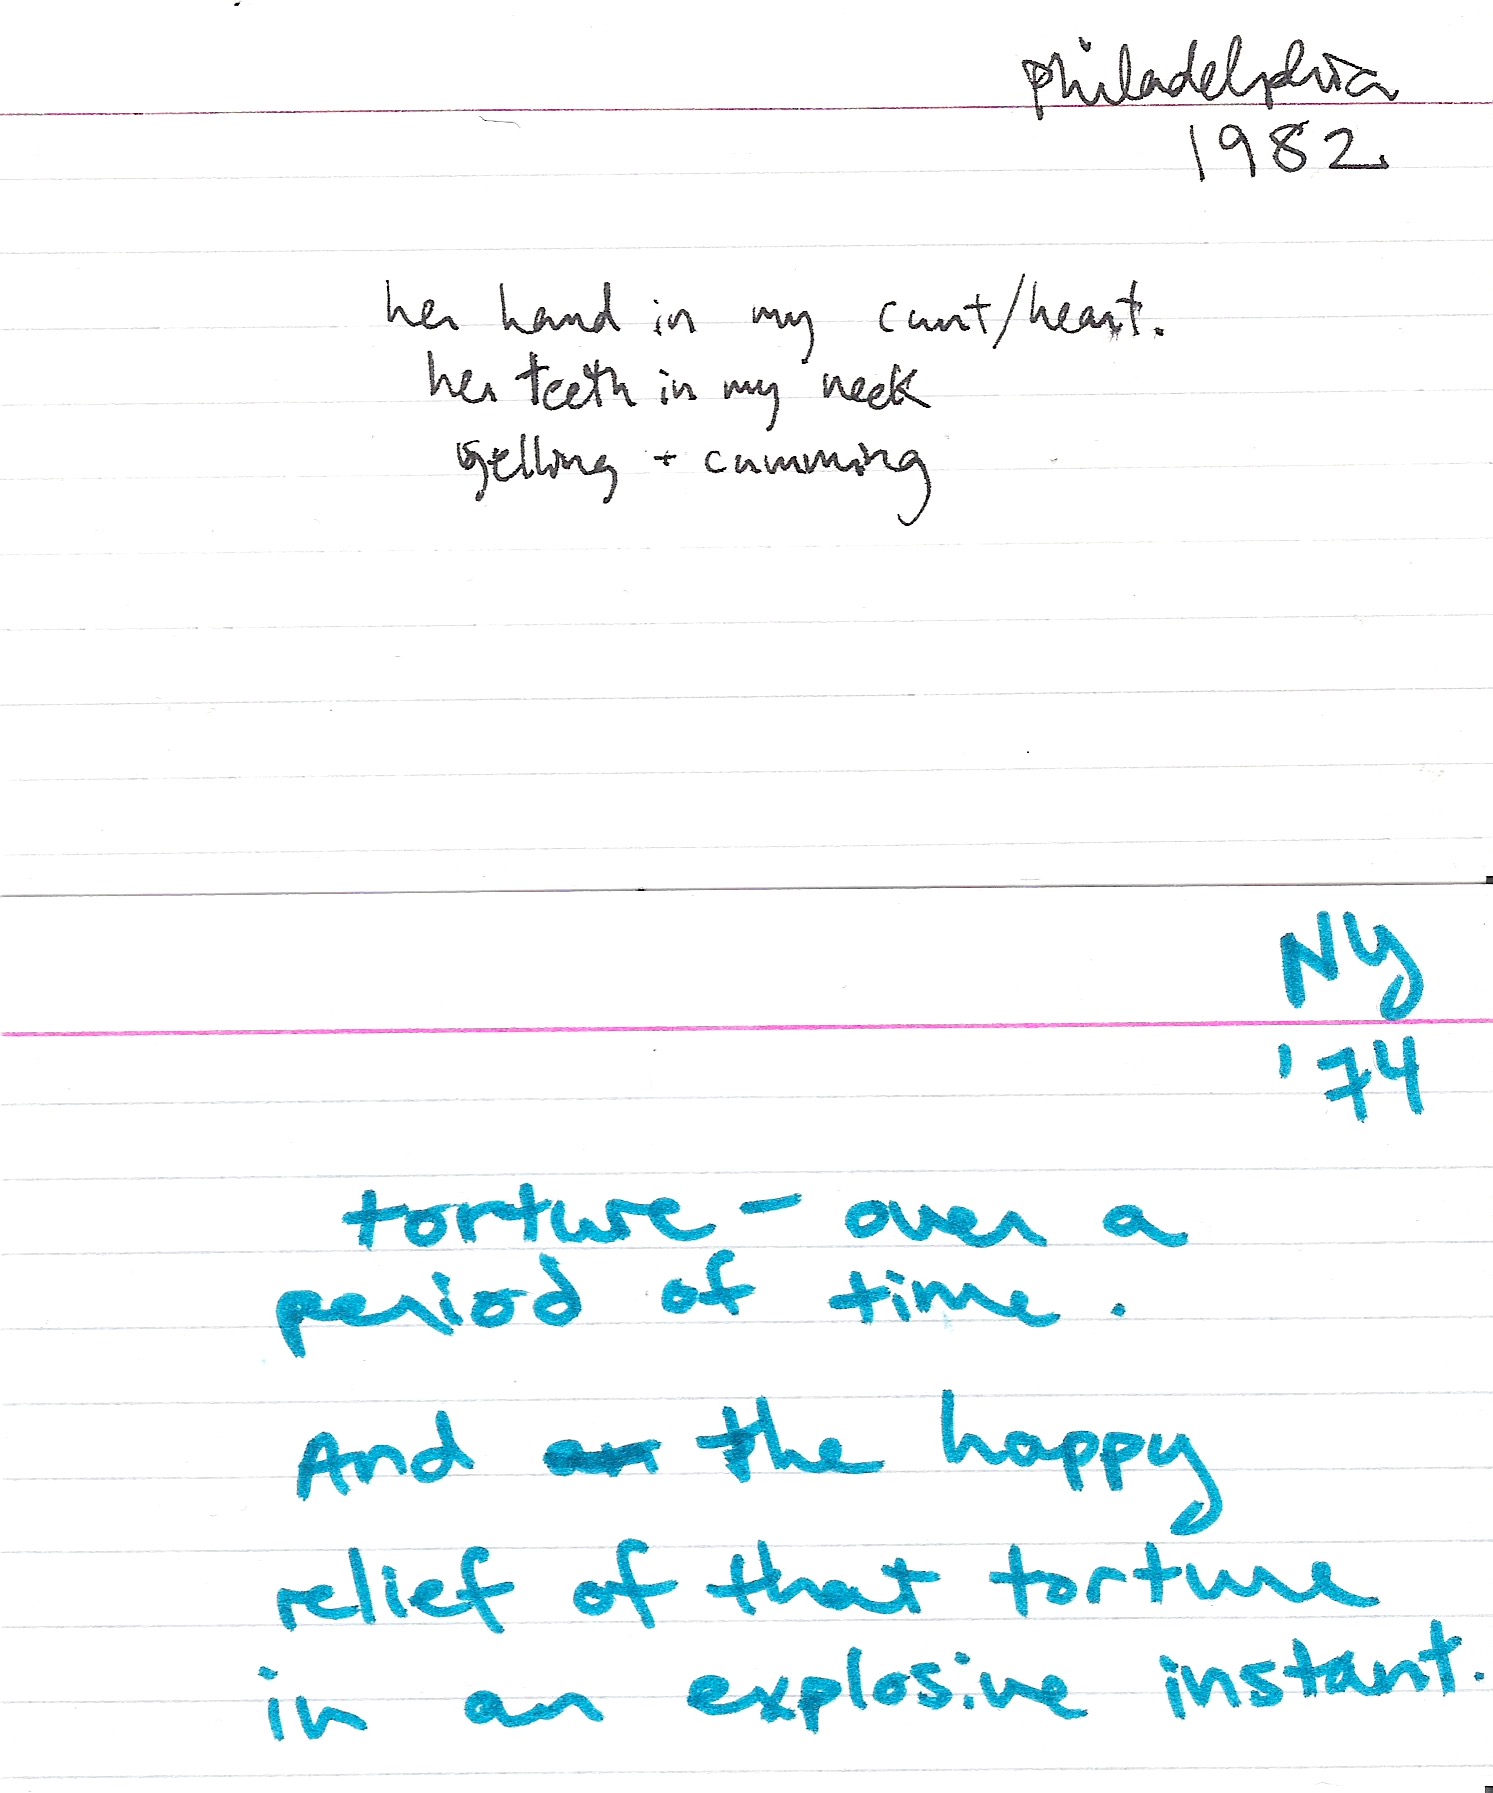 Philadelphia
1982
her hand in my cunt/heart.
her teeth in my neck
yelling + cumming
NY
'74
torture - over a
period of time.
And the happy
relief of that torture
in an explosive instant.